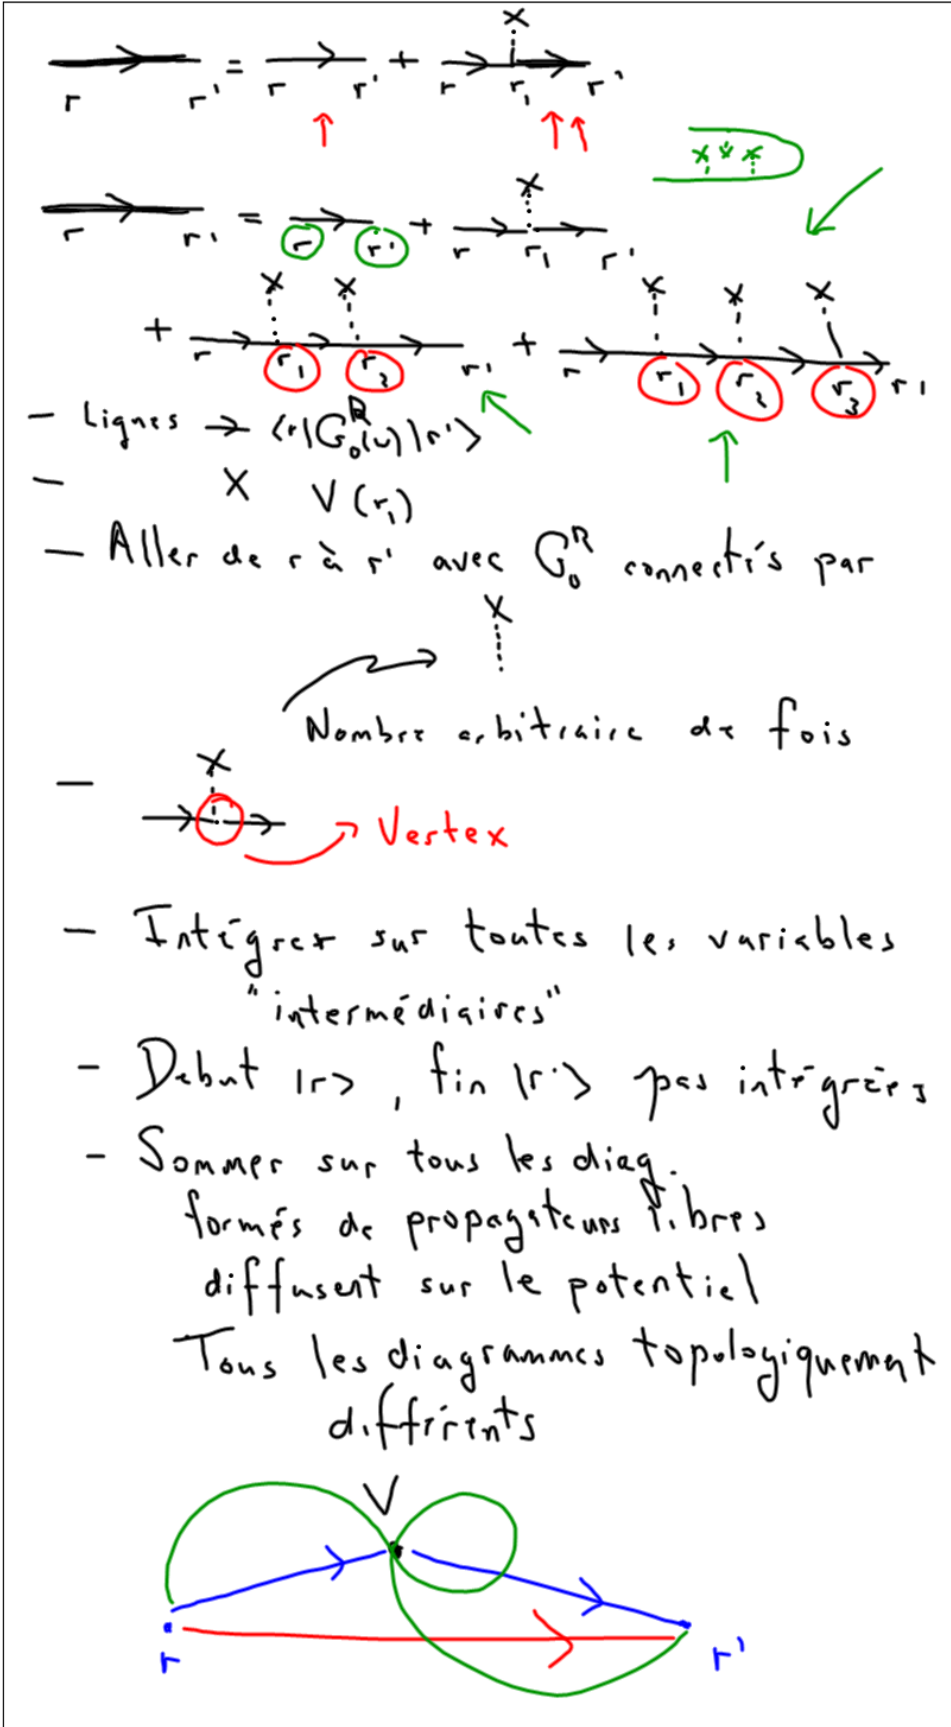 r r' = r r' + r r₁ r'
x
x x x
r r' = r r' + r r₁ r'
x
x x x x x
+ r r₁ r₂ r' + r r₁ r₂ r₃ r'
- Lignes → ⟨r|G₀ᴿ(ω)|r'⟩
- X V(r₁)
- Aller de r à r' avec G₀ᴿ connectés par
X
Nombre arbitraire de fois
X
- → Vertex
- Intégrer sur toutes les variables
"intermédiaires"
- Debut |r>, fin |r'> pas intégrées
- Sommer sur tous les diag.
formés de propagateurs libres
diffusent sur le potentiel
Tous les diagrammes topologiquement
différents
V
r r'